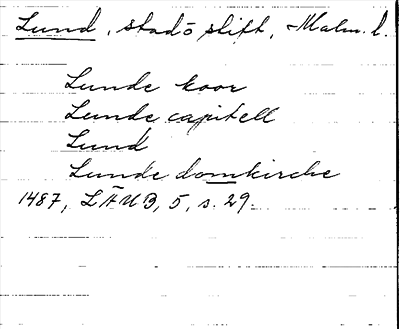 Lund, stad o stift, Malm. l.
Lunde koor
Lunde capitell
Lund
Lunde domkirche
1487, LÄUB, 5, s. 29.